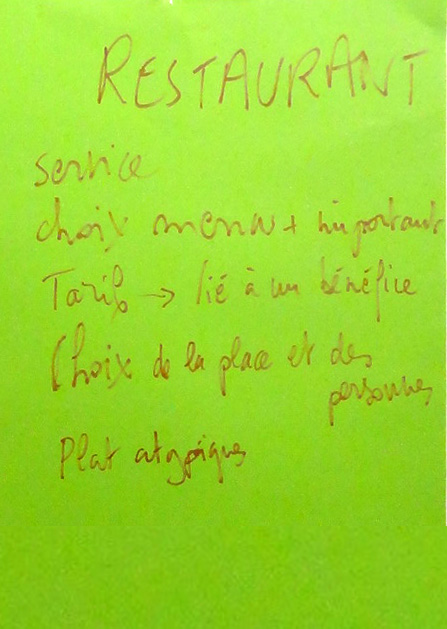 RESTAURANT
service
choix menu + important
Tarifs → lié à un bénéfice
Choix de la place et des
personnes
Plat atypiques